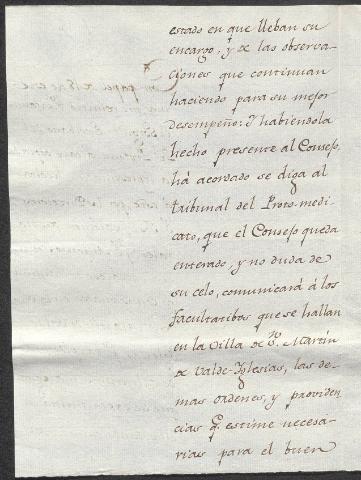 estado en que lleban su
encargo, y de las observa-
ciones que continuan
haciendo para su mejor
desempeño: Y habiendola
hecho presente al Consejo,
há acordado se diga al
tribunal del Proto-medi-
cato, que el Consejo queda
enterado, y no duda de
su celo, comunicará á los
facultatibos que se hallan
en la Villa de Sn. Martin
de Valde-Iglesias, las de-
mas ordenes, y providen
cias q.e estime necesa-
rias para el buen